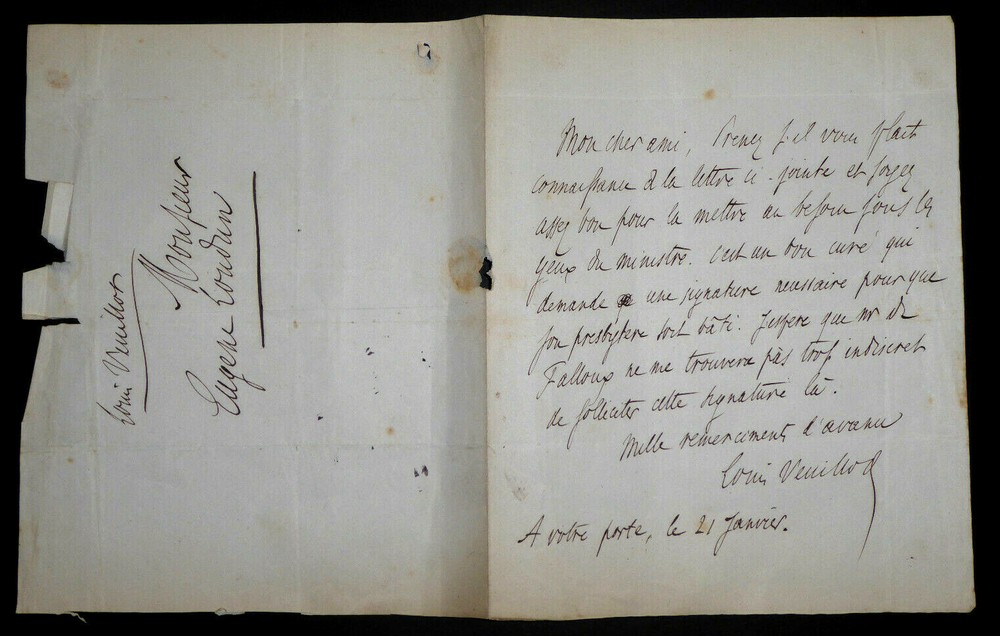 Louis Veuillot
Monsieur
Eugène Loudun
Mon cher ami, Prenez s'il vous plait
connaissance de la lettre ci-jointe et soyez
assez bon pour la mettre au besoin sous les
yeux du ministre. C'est un bon curé qui
demande une signature necessaire pour que
son presbytere soit bâti. J'espere que mr de
Falloux ne me trouvera pas trop indiscret
de solliciter cette signature là.
Mille remerciments d'avance
Louis Veuillot
A votre porte, le 21 Janvier.